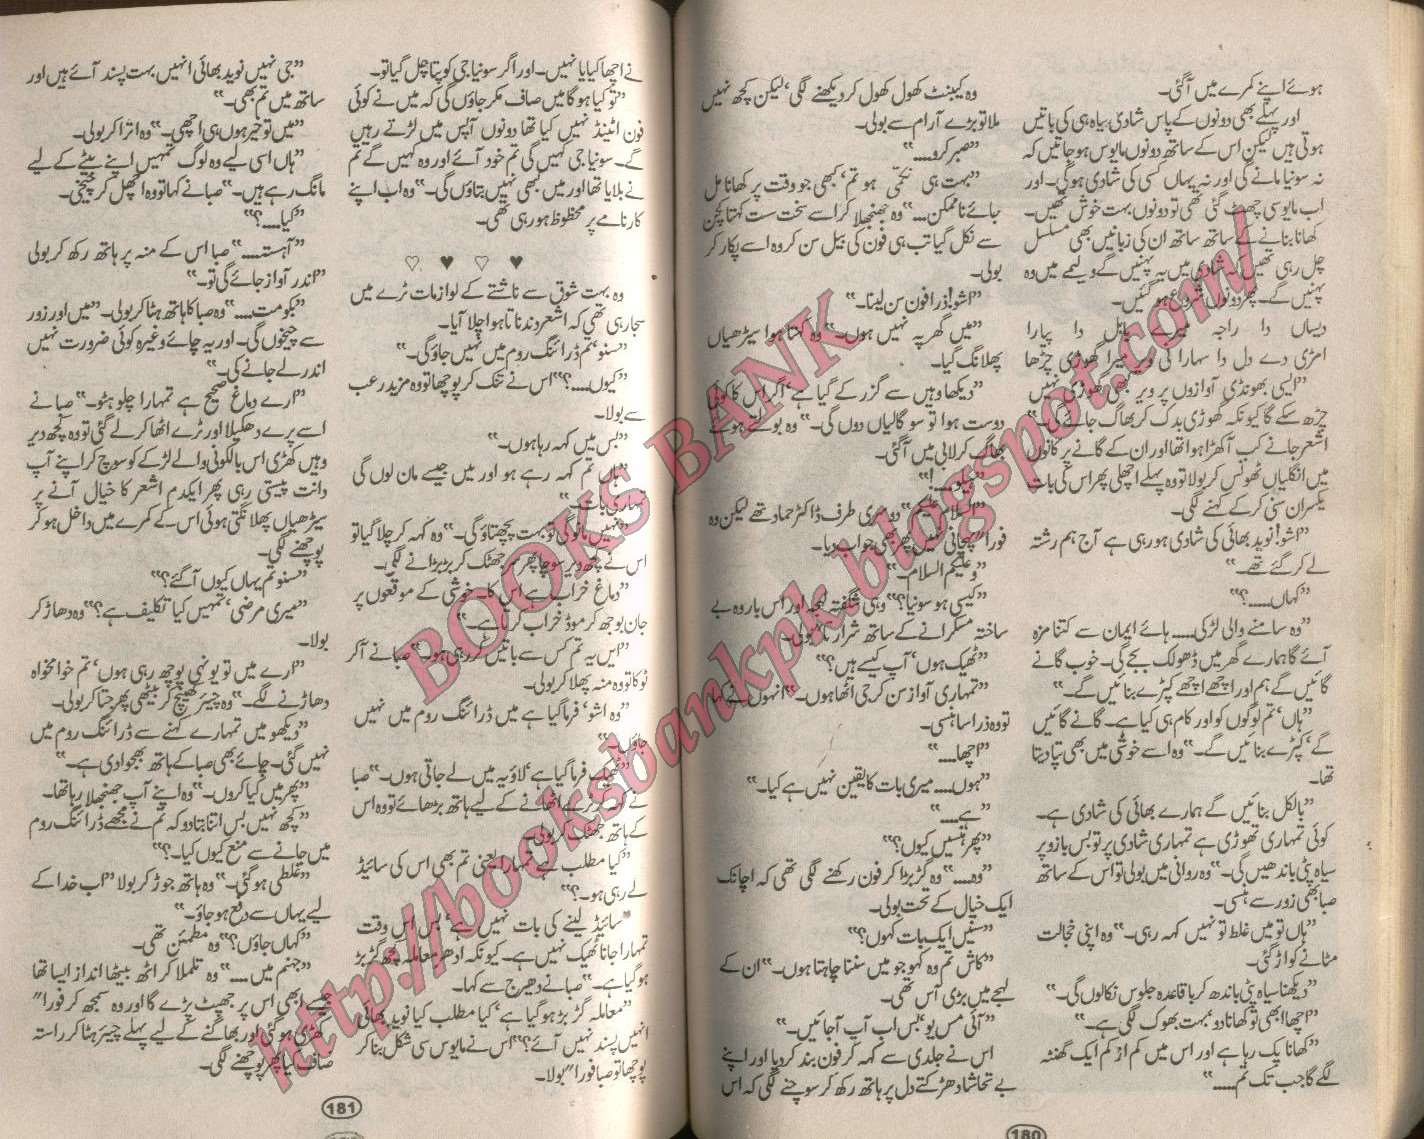 ہوئے اپنے کمرے میں آ گئی۔
اور پہلے بھی دونوں کے پاس شادی بیاہ ہی کی باتیں
ہوتی ہیں لیکن اس کے ساتھ دونوں مایوس ہو جاتیں کہ
نہ سونیا مانے گی اور نہ یہاں کسی کی شادی ہو گی۔ اور
اب مایوسی چھٹ گئی تھی تو دونوں بہت خوش تھیں۔
کھانا بنانے کے ساتھ ساتھ ان کی زبانیں بھی مسلسل
چل رہی تھیں کہ شادی میں یہ پہنیں گے ولیمے میں وہ
پہنیں گے۔ پھر دونوں شروع ہو گئیں۔
دیساں دا راجہ میرے بابل دا پیارا
امڑی دے دل دا سہارا نی ویر میرا گھوڑی چڑھیا
”ایسی بھونڈی آوازوں پر ویر بھی گھوڑی نہیں
چڑھ سکے گا کیونکہ گھوڑی بدک کر بھاگ جائے گی۔“
اشعر جانے کب آ کھڑا ہوا تھا اور ان کے گانے پر کانوں
میں انگلیاں ٹھونس کر بولا تو وہ پہلے اچھلی پھر اس کی بات
یکسر ان سنی کر کے کہنے لگی۔
”اشو! نوید بھائی کی شادی ہو رہی ہے آج ہم رشتہ
لے کر گئے تھے۔“
”کہاں.....؟“
”وہ سامنے والی لڑکی..... ہائے ایمان سے کتنا مزہ
آئے گا ہمارے گھر میں ڈھولک بجے گی۔ خوب گانے
گائیں گے ہم اور اچھے اچھے کپڑے بنائیں گے۔“
”ہاں‘ تم لوگوں کو اور کام ہی کیا ہے۔ گانے گائیں
گے‘ کپڑے بنائیں گے۔“ وہ اسے خوشی میں بھی تپا دیتا
تھا۔
”بالکل بنائیں گے ہمارے بھائی کی شادی ہے۔
کوئی تمہاری تھوڑی ہے تمہاری شادی پر تو بس بازو پر
سیاہ پٹی باندھیں گی۔“ وہ روانی میں بولی تو اس کے ساتھ
صبا بھی زور سے ہنسی۔
”ہاں تو میں غلط تو نہیں کہہ رہی۔“ وہ اپنی خجالت
مٹانے کو اڑ گئی۔
”دیکھنا سیاہ پٹی باندھ کر باقاعدہ جلوس نکالوں گی۔“
”اچھا ابھی تو کھانا دو‘ بہت بھوک لگی ہے۔“
”کھانا پک رہا ہے اور اس میں کم از کم ایک گھنٹہ
لگے گا جب تک تم.....“
وہ کیبنٹ کھول کھول کر دیکھنے لگی‘ لیکن کچھ نہیں
ملا تو بڑے آرام سے بولی۔
”صبر کرو.....“
”بہت ہی نکمّی ہو تم‘ کبھی جو وقت پر کھانا مل
جائے ناممکن.....“ وہ جھنجلا کر اسے سخت ست کہتا کچن
سے نکل گیا تب ہی فون کی بیل سن کر وہ اسے پکار کر
بولی۔
”اشو! ذرا فون سن لینا۔“
”میں گھر پہ نہیں ہوں۔“ وہ کہتا ہوا سیڑھیاں
پھلانگ گیا۔
”دیکھا وہیں سے گزر کے گیا ہے‘ اگر اس کا کوئی
دوست ہوا تو سو گالیاں دوں گی۔“ وہ بولتے ہوئے
بھاگ کر لابی میں آ گئی۔
”ہیلو.....!“
”السلام علیکم“ دوسری طرف ڈاکٹر حماد تھے لیکن وہ
فوراً پہچانی نہیں پھر بھی جواب دیا۔
”وعلیکم السلام۔“
”کیسی ہو سونیا؟“ وہی شگفتہ لہجہ اور اس بار وہ بے
ساختہ مسکرانے کے ساتھ شرارتاً بولی۔
”ٹھیک ہوں‘ آپ کیسے ہیں؟“
”تمہاری آواز سن کر جی اٹھا ہوں۔“ انہوں نے کہا
تو وہ ذرا سا ہنسی۔
”اچھا.....“
”ہوں..... میری بات کا یقین نہیں ہے کیا۔“
”ہے.....“
”پھر ہنسیں کیوں؟“
”وہ.....“ وہ گڑبڑا کر فون رکھنے لگی تھی کہ اچانک
ایک خیال کے تحت بولی۔
”سنیں ایک بات کہوں؟“
”کاش تم وہ کہو جو میں سننا چاہتا ہوں۔“ ان کے
لہجے میں بڑی آس تھی۔
”آئی مس یو‘ بس اب آپ آ جائیں۔“
اس نے جلدی سے کہہ کر فون بند کر دیا اور اپنے
بے تحاشا دھڑکتے دل پر ہاتھ رکھ کر سوچنے لگی کہ اس
180
نے اچھا کیا یا نہیں۔ اور اگر سونیا جی کو پتا چل گیا تو۔
”تو کیا ہو گا میں صاف مکر جاؤں گی کہ میں نے کوئی
فون اٹینڈ نہیں کیا تھا دونوں آپس میں لڑتے رہیں
گے۔ سونیا جی کہیں گی تم خود آئے اور وہ کہیں گے تم
نے بلایا تھا اور میں کبھی نہیں بتاؤں گی۔“ وہ اب اپنے
کارنامے پر محظوظ ہو رہی تھی۔
♥ ♡ ♥ ♡
وہ بہت شوق سے ناشتے کے لوازمات ٹرے میں
سجا رہی تھی کہ اشعر دندناتا ہوا چلا آیا۔
”سنو‘ تم ڈرائنگ روم میں نہیں جاؤ گی۔“
”کیوں.....؟“ اس نے تنک کر پوچھا تو وہ مزید رعب
سے بولا۔
”بس میں کہہ رہا ہوں۔“
”ہاں تم کہہ رہے ہو اور میں جیسے مان لوں گی
تمہاری بات۔“
”نہیں مانو گی تو بہت پچھتاؤ گی۔“ وہ کہہ کر چلا گیا تو
اس نے کچھ دیر سوچا پھر سر جھٹک کر بڑبڑانے لگی۔
”دماغ خراب ہے اس کا۔ خوشی کے موقعوں پر
جان بوجھ کر موڈ خراب کرتا ہے۔“
”ایں یہ تم کس سے باتیں کر رہی ہو۔“ صبا نے آ کر
ٹوکا تو وہ منہ پھلا کر بولی۔
”وہ اشو‘ فرما گیا ہے میں ڈرائنگ روم میں نہیں
جاؤں۔“
”ٹھیک فرما گیا ہے‘ لاؤ یہ میں لے جاتی ہوں۔“ صبا
نے کہہ کر ٹرے اٹھانے کے لیے ہاتھ بڑھائے تو وہ اس
کے ہاتھ جھٹک کر بولی۔
”کیا مطلب ہے تمہارا یعنی تم بھی اس کی سائیڈ
لے رہی ہو۔؟“
”سائیڈ لینے کی بات نہیں ہے‘ بس اس وقت
تمہارا جانا ٹھیک نہیں ہے۔ کیونکہ ادھر معاملہ کچھ گڑبڑ
ہو گیا ہے۔“ صبا نے دھیرج سے کہا۔
”معاملہ گڑبڑ ہو گیا ہے‘ کیا مطلب کیا نوید بھائی
انہیں پسند نہیں آئے؟“ اس نے مایوس سی شکل بنا کر
پوچھا تو صبا فوراً بولا۔
”جی نہیں نوید بھائی انہیں بہت پسند آئے ہیں اور
ساتھ میں تم بھی۔“
”میں تو خیر ہوں ہی اچھی۔“ وہ اترا کر بولی۔
”ہاں اسی لیے وہ لوگ تمہیں اپنے بیٹے کے لیے
مانگ رہے ہیں۔“ صبا نے کہا تو وہ اچھل کر چیخی۔
”کیا.....؟“
”آہستہ.....“ صبا اس کے منہ پر ہاتھ رکھ کر بولی
”اندر آواز جائے گی تو۔“
”بکومت.....“ وہ صبا کا ہاتھ ہٹا کر بولی۔ ”میں اور زور
سے چیخوں گی۔ اور یہ چائے وغیرہ کوئی ضرورت نہیں
اندر لے جانے کی۔“
”ارے دماغ صحیح ہے تمہارا چلو ہٹو۔“ صبا نے
اسے پرے دھکیلا اور ٹرے اٹھا کر لے گئی تو وہ کچھ دیر
وہیں کھڑی اس بالکونی والے لڑکے کو سوچ کر اپنے آپ
دانت پیستی رہی پھر ایکدم اشعر کا خیال آنے پر
سیڑھیاں پھلانگتی ہوئی اس کے کمرے میں داخل ہو کر
پوچھنے لگی۔
”سنو تم یہاں کیوں آ گئے؟“
”میری مرضی‘ تمہیں کیا تکلیف ہے؟“ وہ دھاڑ کر
بولا۔
”ارے میں تو یونہی پوچھ رہی ہوں‘ تم خوامخواہ
دھاڑنے لگے۔“ وہ چیئر کھینچ کر بیٹھی پھر جتا کر بولی۔
”دیکھو میں تمہارے کہنے سے ڈرائنگ روم میں
نہیں گئی۔ چائے بھی صبا کے ہاتھ بھجوا دی ہے۔“
”پھر میں کیا کروں۔“ وہ اپنے آپ جھنجھلا رہا تھا۔
”کچھ نہیں بس اتنا بتا دو کہ تم نے مجھے ڈرائنگ روم
میں جانے سے منع کیوں کیا۔؟“
”غلطی ہو گئی۔“ وہ ہاتھ جوڑ کر بولا ”اب خدا کے
لیے یہاں سے دفع ہو جاؤ۔“
”کہاں جاؤں؟“ وہ مطمئن تھی۔
”جہنم میں.....“ وہ تلملا کر اٹھ بیٹھا انداز ایسا تھا
جیسے ابھی اس پر جھپٹ پڑے گا اور وہ سمجھ کر فوراً
کھڑی ہو گئی اور بھاگنے کے لیے پہلے چیئر ہٹا کر راستہ
صاف کیا پھر پوچھنے لگی۔
181
BOOKS BANK
http://booksbankpk.blogspot.com/